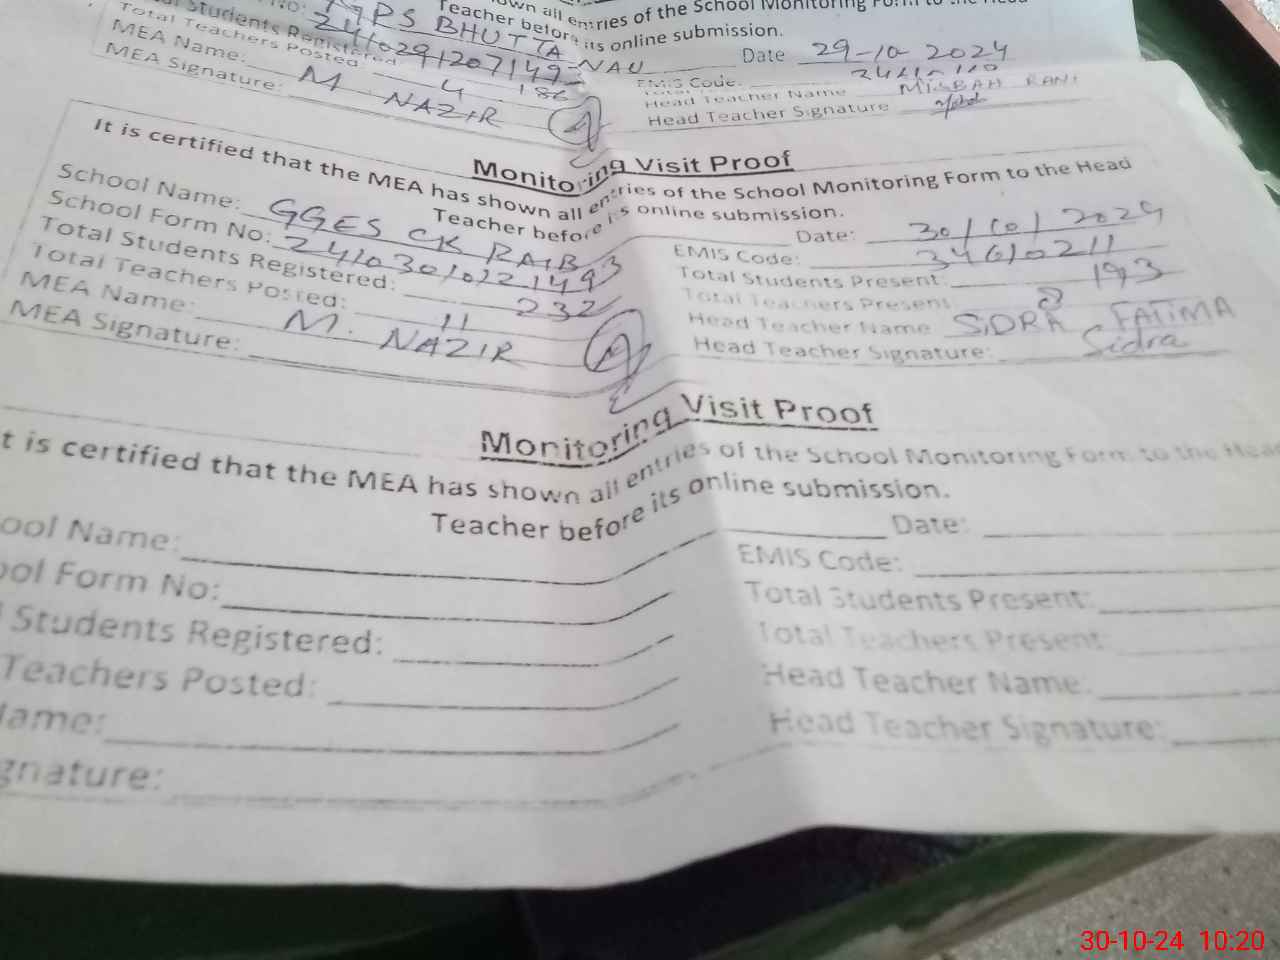 own all entries of the School Monitoring Form to the Head
Teacher before its online submission.
GPS BHUTTA NAU Date 29-10-2024
Students Registered 186 EMIS Code:
Total Teachers Posted 4 Head Teacher Name MISBAH RANI
MEA Name: M NAZIR Head Teacher Signature
MEA Signature:
Monitoring Visit Proof
It is certified that the MEA has shown all entries of the School Monitoring Form to the Head
Teacher before its online submission.
School Name: GGES CK RAIB Date: 30/10/2024
School Form No: 24103010121493 EMIS Code: 34610211
Total Students Registered: 232 Total Students Present: 193
Total Teachers Posted: 11 Total Teachers Present 8
MEA Name: M. NAZIR Head Teacher Name SIDRA FATIMA
MEA Signature: Head Teacher Signature: Sidra
Monitoring Visit Proof
t is certified that the MEA has shown all entries of the School Monitoring Form to the Head
Teacher before its online submission.
ool Name: Date:
ool Form No: EMIS Code:
Students Registered: Total Students Present:
Teachers Posted: Total Teachers Present:
Name: Head Teacher Name:
gnature: Head Teacher Signature:
30-10-24 10:20